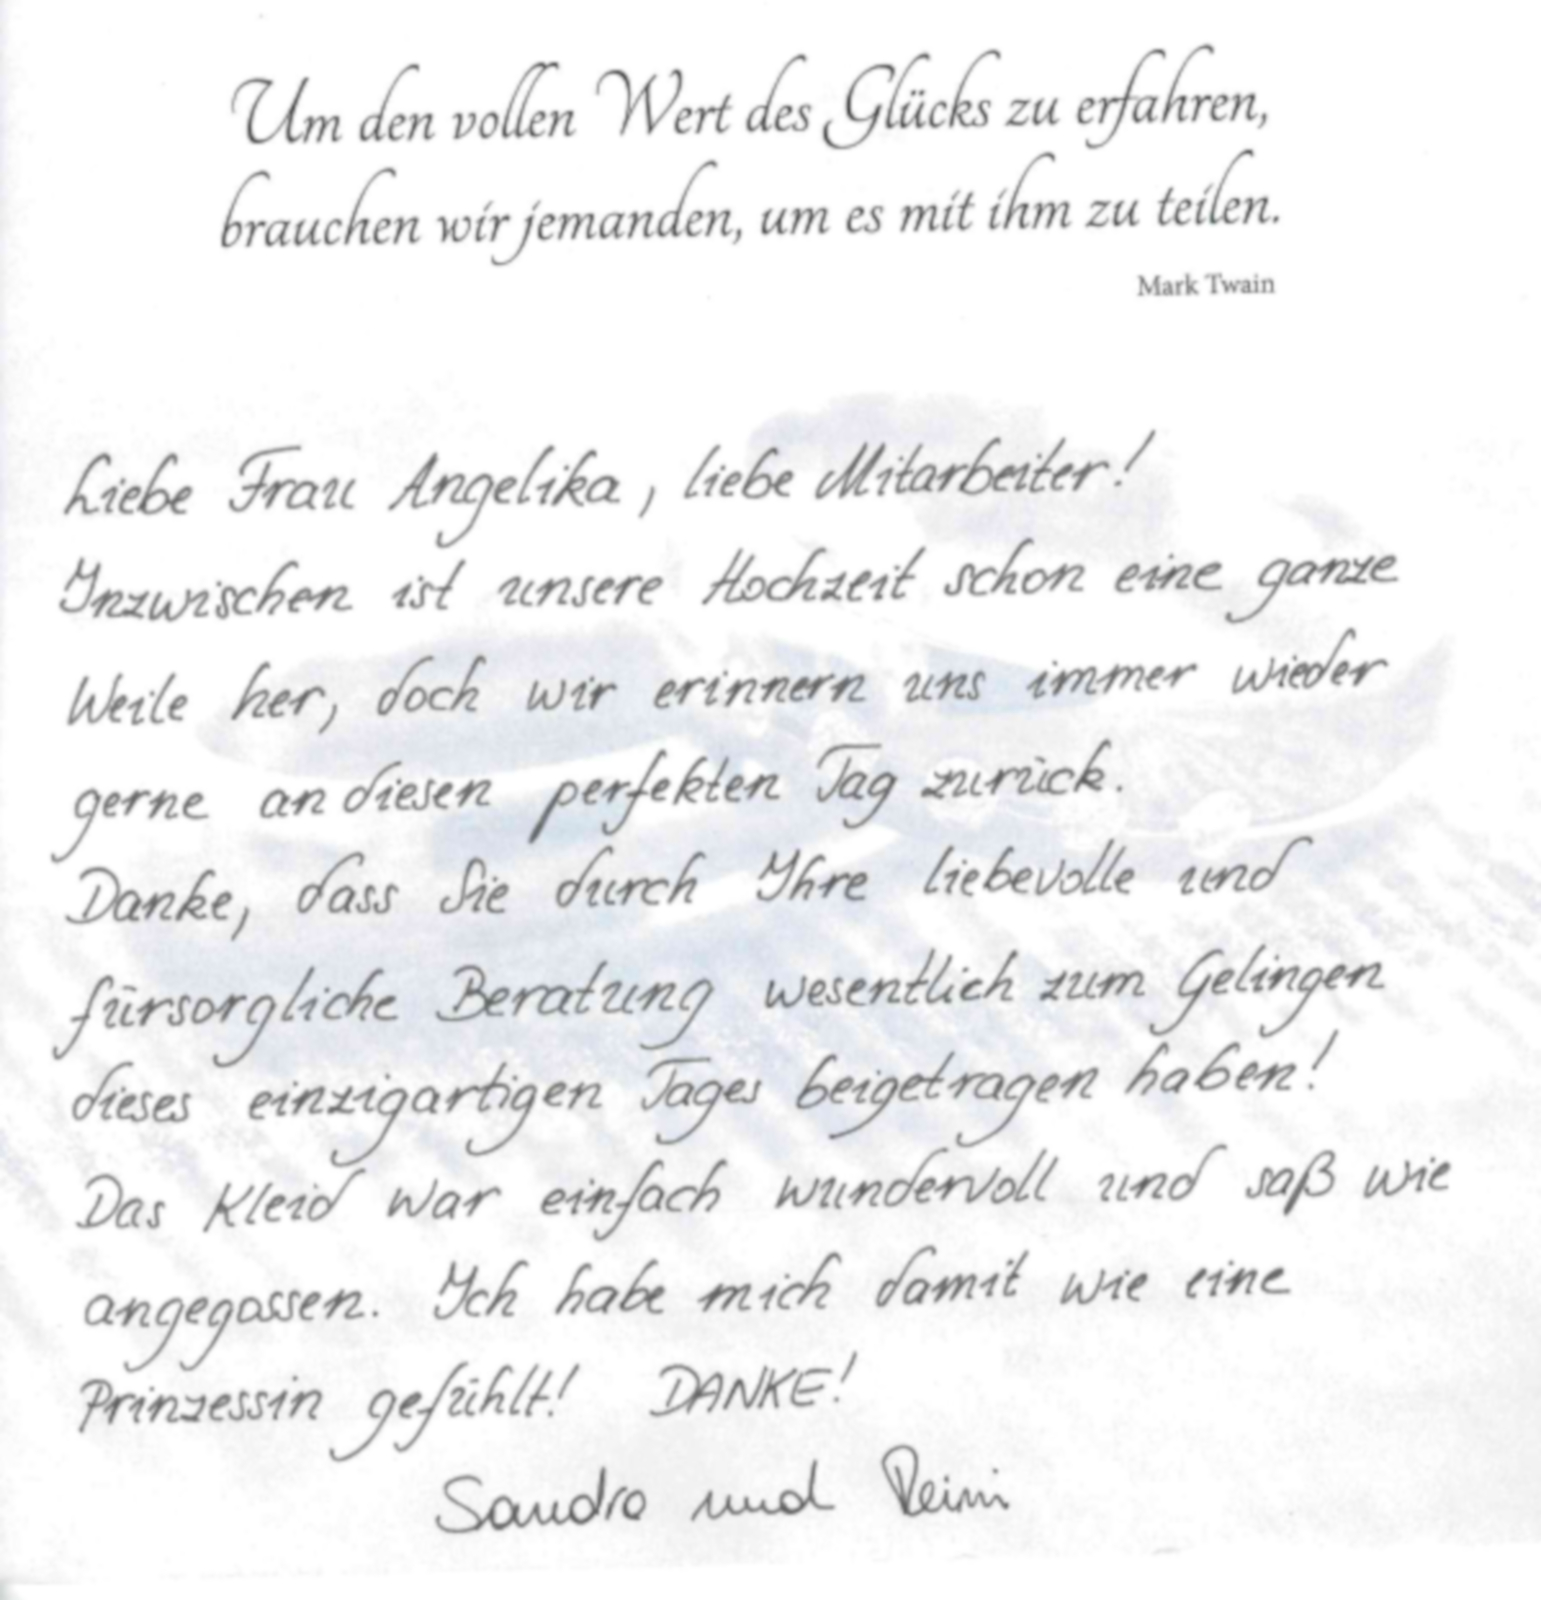 Um den vollen Wert des Glücks zu erfahren,
brauchen wir jemanden, um es mit ihm zu teilen.
Mark Twain
Liebe Frau Angelika, liebe Mitarbeiter!
Inzwischen ist unsere Hochzeit schon eine ganze
Weile her, doch wir erinnern uns immer wieder
gerne an diesen perfekten Tag zurück.
Danke, dass Sie durch Ihre liebevolle und
fürsorgliche Beratung wesentlich zum Gelingen
dieses einzigartigen Tages beigetragen haben!
Das Kleid war einfach wundervoll und saß wie
angegossen. Ich habe mich damit wie eine
Prinzessin gefühlt! DANKE!
Sandra und Reini